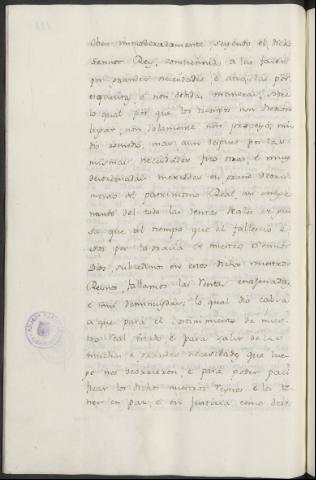 immoderadamente, seyendo el dicho
Sennor Rey, constrennido a las facer
por grandes necesidades, e atraydas por
esquisitas, e non debidas maneras, sobre
lo qual por que los tiempos non dieron
lugar, non solamente non proveyó, nin
dio remedio, mas aun despues por las
mismas necesidades fizo otras, e muy
desordenadas mercedes en grand detri-
mento del patrimonio Real, en
del todo las rentas Reales
sa que al tiempo que el fallecio é
nos por la gracia de nuestro Sennor
Dios, subcedimos en estos dichos nuestros
Reynos, fallamos las rentas enagenadas
e muy deminuydas, lo qual dió cabsa
a que para el sostenimiento de nues-
tro Real Estado e para salir de las
muchas e grandes necesidades que lue-
go nos ocurrieron, e para poder paci-
ficar los dichos nuestros reynos e los te-
ner en paz, e en justicia como deve